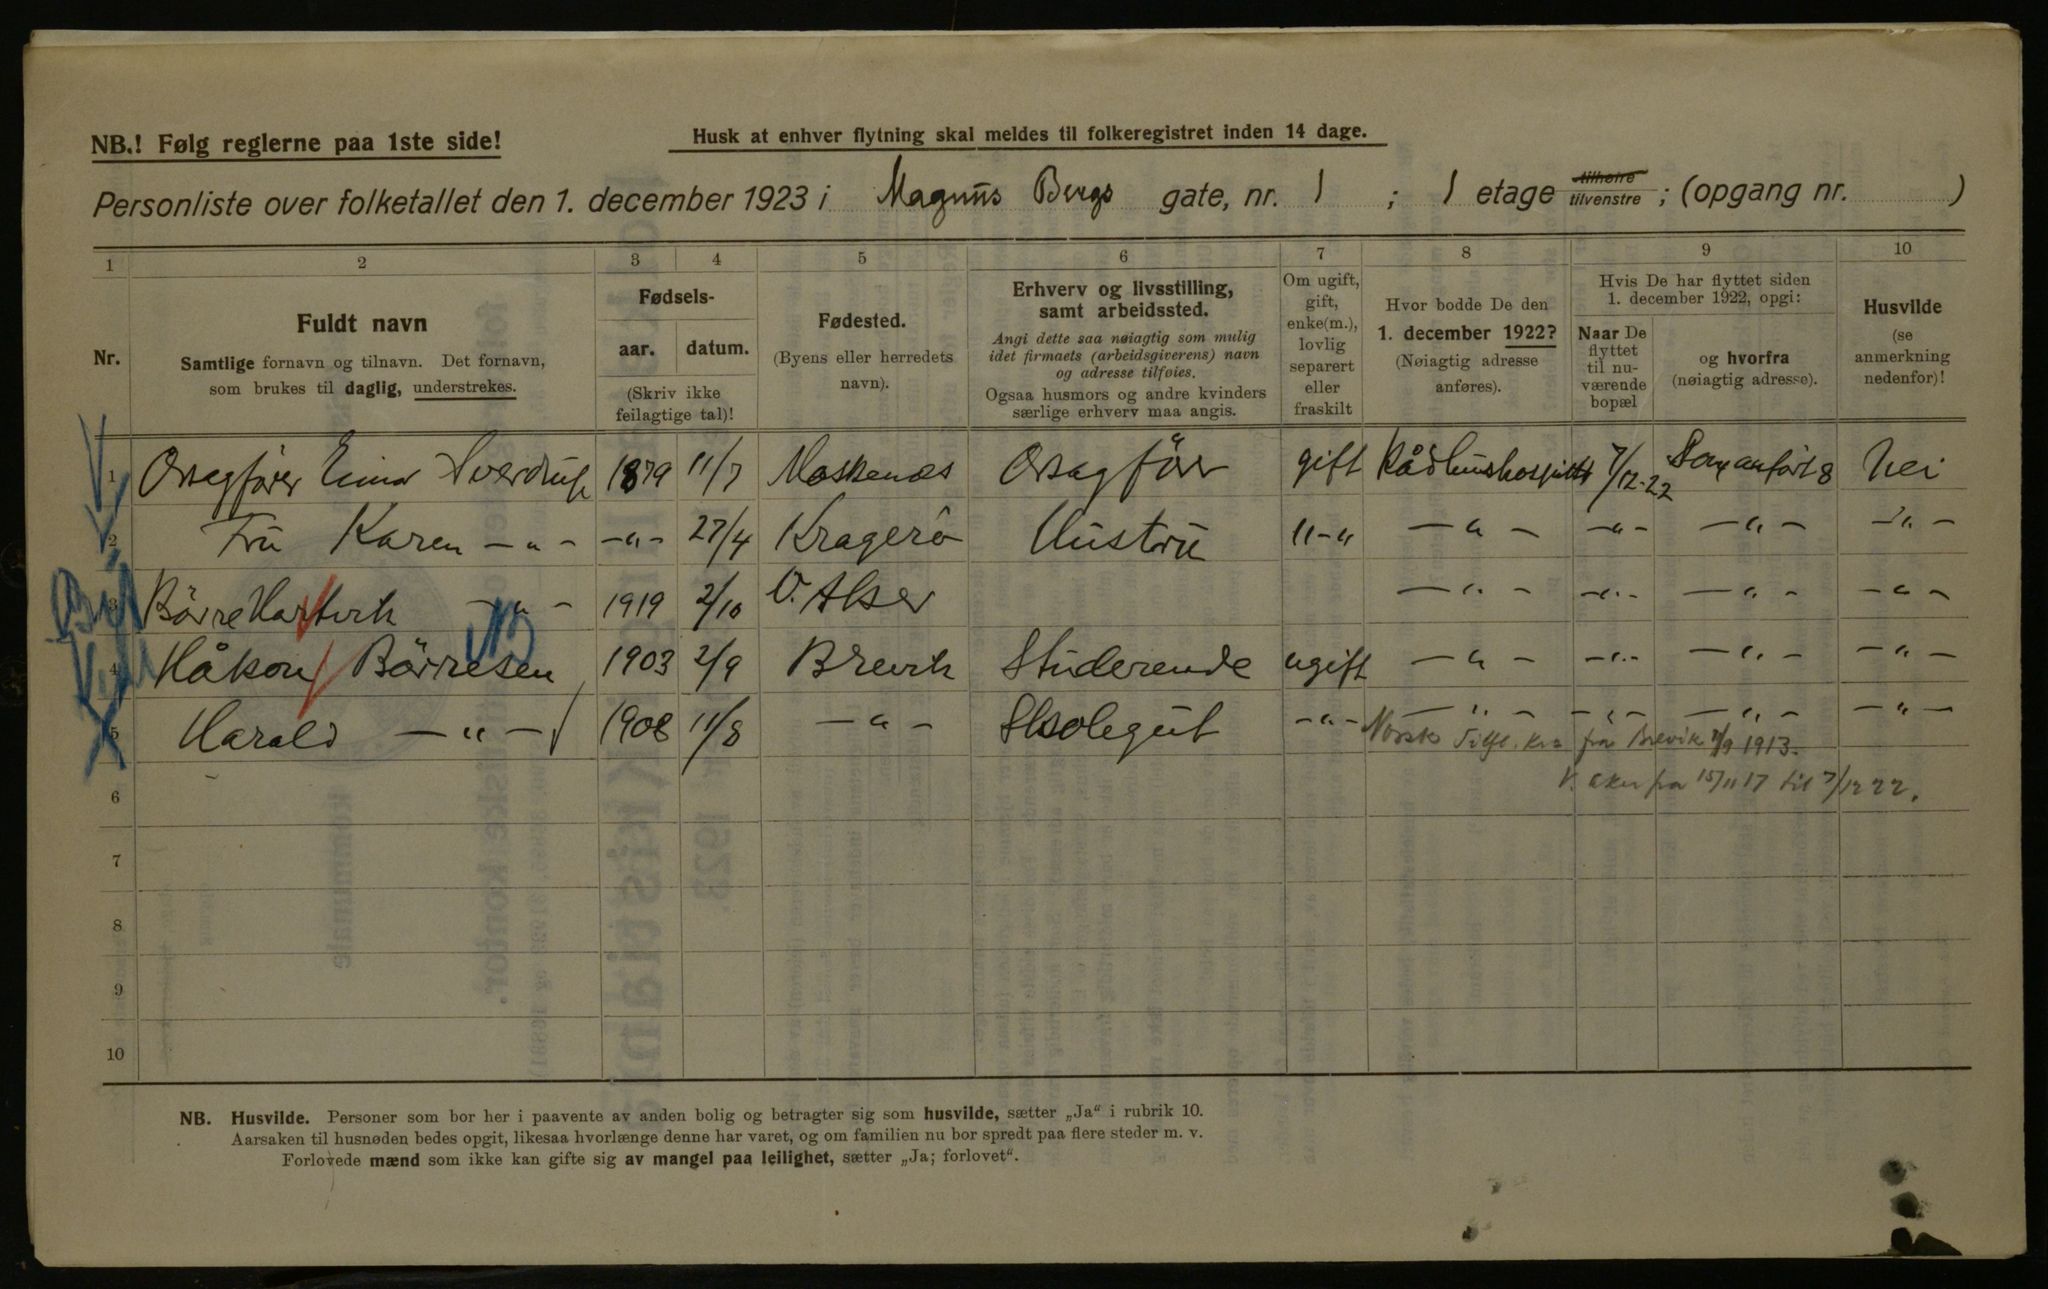 NB.! Følg reglerne paa 1ste side!
Husk at enhver flytning skal meldes til folkeregistret inden 14 dage.
Personliste over folketallet den 1. december 1923 i Magnus Bergs gate, nr. 1 ; 1 etage tilhøire tilvenstre ; (opgang nr. )
1 2 3 4 5 6 7 8 9 10
Nr.
Fuldt navn
Samtlige fornavn og tilnavn. Det fornavn,
som brukes til daglig, understrekes.
Fødsels-
aar. datum.
(Skriv ikke
feilagtige tal)!
Fødested.
(Byens eller herredets
navn).
Erhverv og livsstilling,
samt arbeidssted.
Angi dette saa nøiagtig som mulig
idet firmaets (arbeidsgiverens) navn
og adresse tilføies.
Ogsaa husmors og andre kvinders
særlige erhverv maa angis.
Om ugift,
gift,
enke(m.),
lovlig
separert
eller
fraskilt
Hvor bodde De den
1. december 1922?
(Nøiagtig adresse
anføres).
Hvis De har flyttet siden
1. december 1922, opgi:
Naar De
flyttet
til nu-
værende
bopæl
og hvorfra
(nøiagtig adresse).
Husvilde
(se
anmerkning
nedenfor)!
1 Osagfører Einar Sverdrup 1879 11/7 Moskenæs Osagfører gift Rådhushospitset 7/12-22 Som anført 8 Nei
2 Fru Karen -"- -"- 27/4 Kragerö Hustru "-" -"- -"- -"- -"-
3 Börre Hartvik -"- 1919 2/10 V. Aker -"- -"- -"- -"-
4 Håkon Börresen 1903 2/9 Brevik Studerende ugift -"- -"- -"- -"-
5 Harald -"- 1908 11/8 -"- Skolegut -"- -"- -"- -"- -"-
Norsk Kra fra Brevik 1/9 1913.
6 V. Aker fra 15/11 17 til 7/12 22.
7
8
9
10
NB. Husvilde. Personer som bor her i paavente av anden bolig og betragter sig som husvilde, sætter „Ja“ i rubrik 10.
Aarsaken til husnøden bedes opgit, likesaa hvorlænge denne har varet, og om familien nu bor spredt paa flere steder m. v.
Forlovede mænd som ikke kan gifte sig av mangel paa leilighet, sætter „Ja; forlovet“.